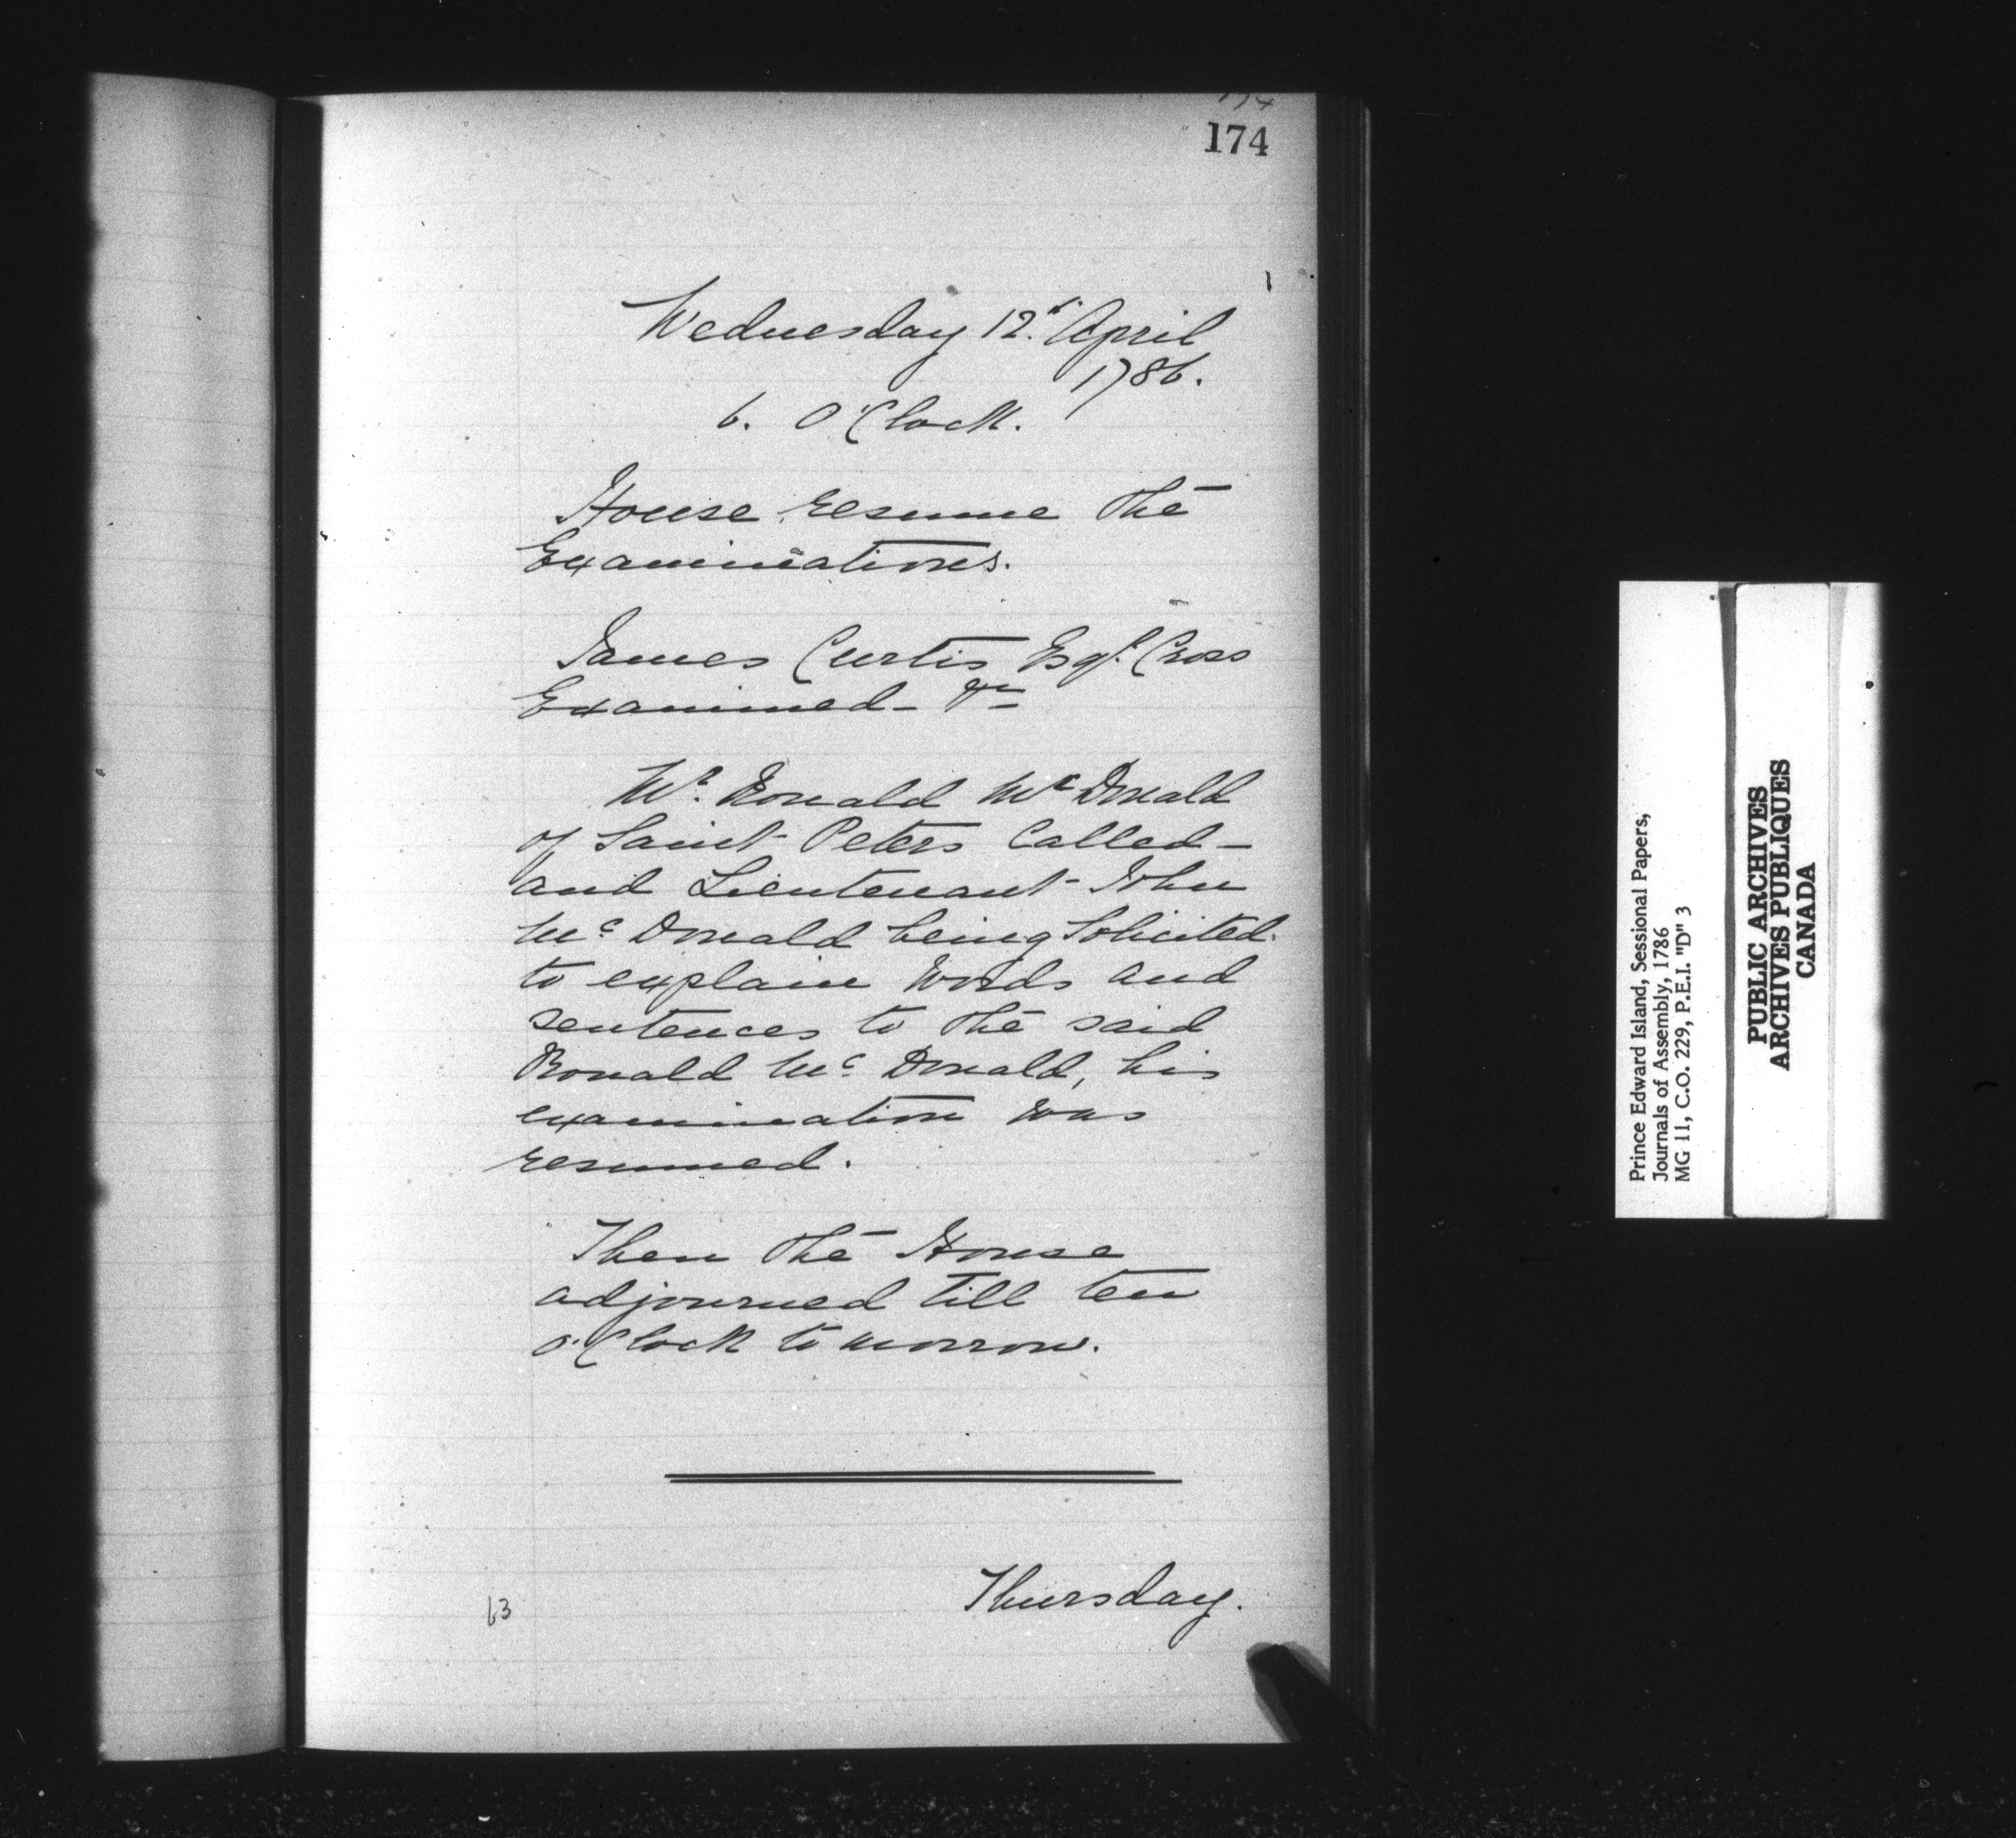 174
174
Wednesday 12th April
1786.
6. O'Clock.
House resume the
Examinations.
James Curtis Esqr. Cross
Examined - &c
Mr. Ronald McDonald
of Saint Peters Called -
and Lieutenant John
Mc Donald being Solicited
to explain words and
sentences to the said
Ronald Mc Donald, his
examination was
resumed.
Then the House
adjourned till ten
o'Clock to morrow.
Thursday.
63
Prince Edward Island, Sessional Papers,
Journals of Assembly, 1786
MG 11, C.O. 229, P.E.I. "D" 3
PUBLIC ARCHIVES
ARCHIVES PUBLIQUES
CANADA